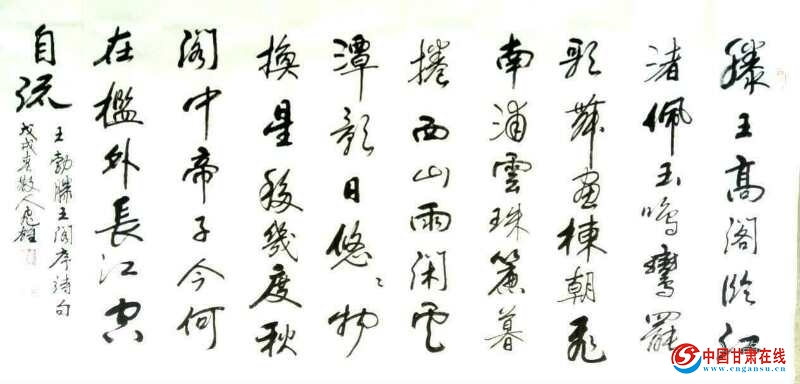 滕王高阁临江
渚佩玉鸣鸾罷
歌舞画棟朝飛
南浦雲珠簾暮
捲西山雨闲雲
潭影日悠々物
换星移幾度秋
阁中帝子今何
在檻外長江空
自流
王勃滕王阁序诗句
戊戌春散人
中国甘肃在线
www.cngansu.cn